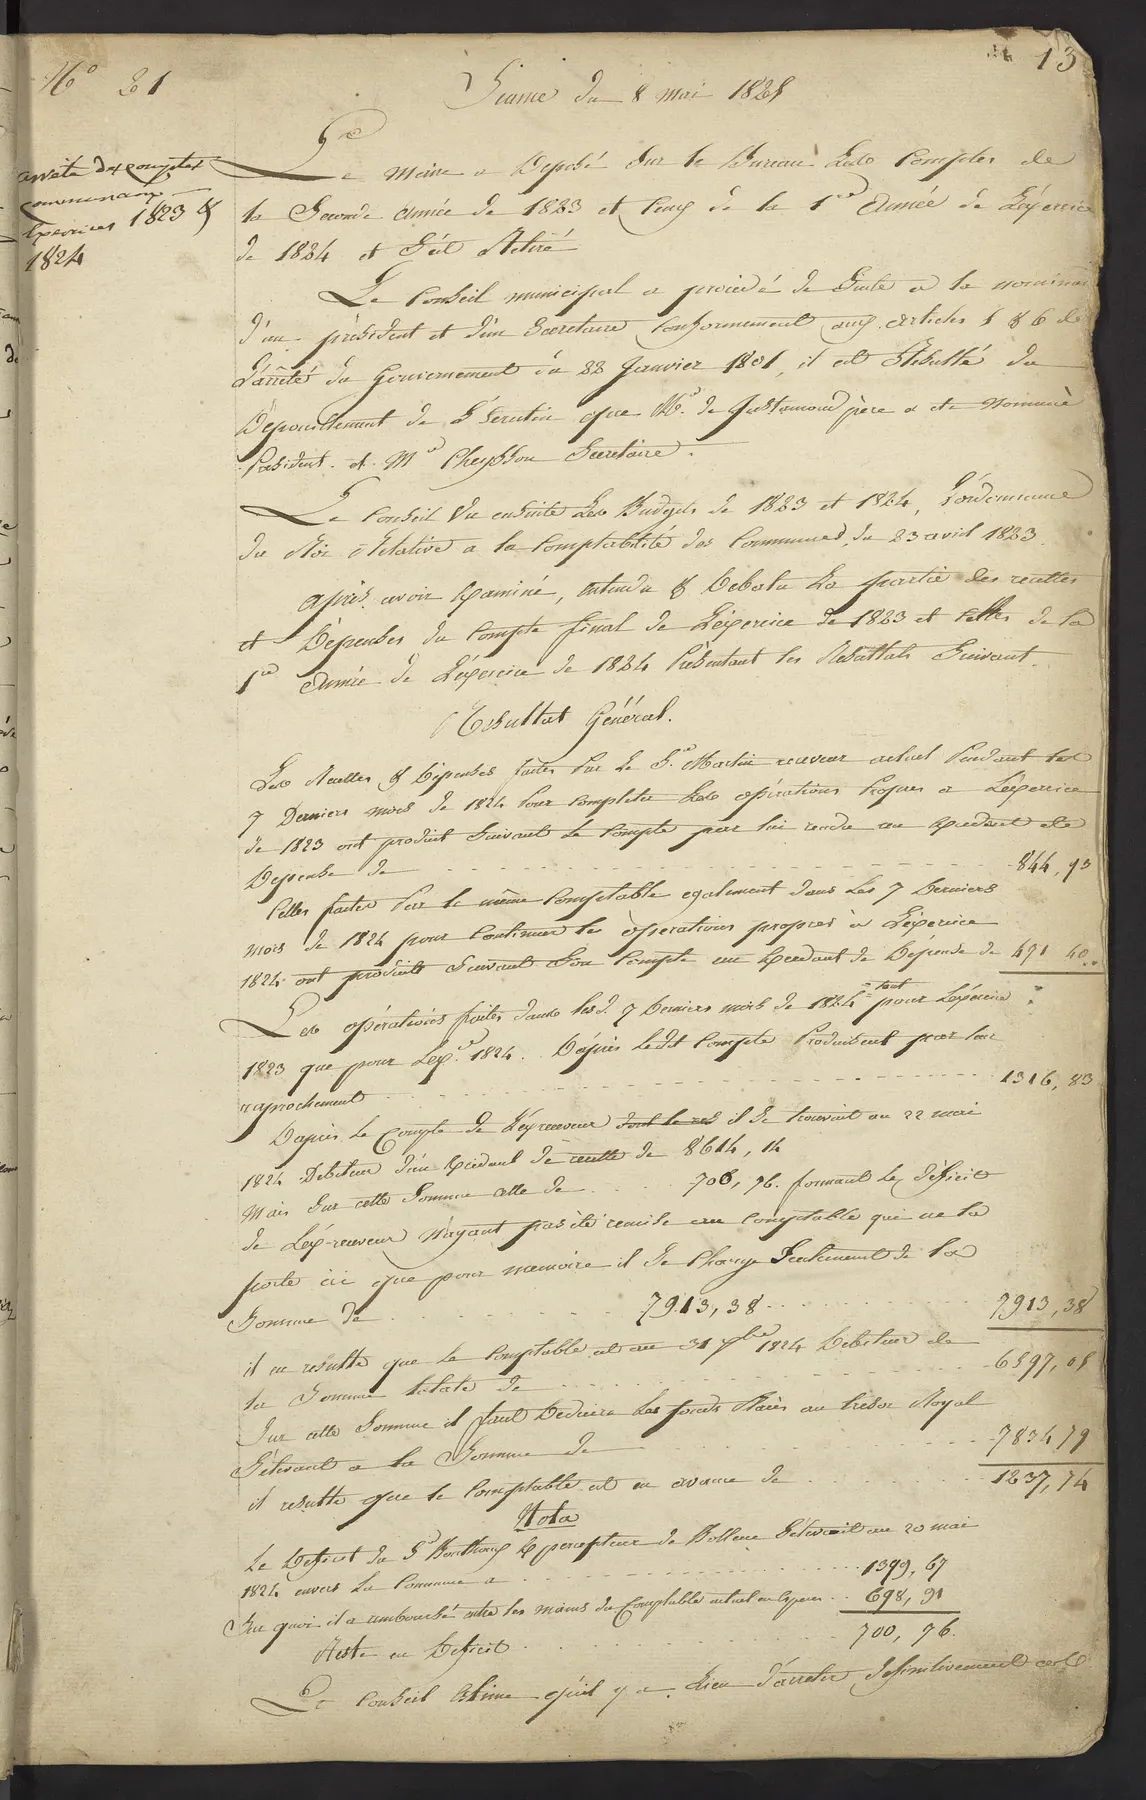 13
N° 21
Séance du 8 mai 1825
arrêté des comptes
communaux
Exercices 1823 &
1824
Le maire a Déposé sur le Bureau Les Comptes de
la Seconde année de 1823 et ceux de la 1re Année de L'éxercice
de 1824 et S'est Retiré
Le Conseil municipal a procédé de Suite a la nomina
d'un président et d'un Secretaire Conformement aux articles 5 & 6 de
L'arrêté du Gouvernement du 22 Janvier 1801, il est Résulté du
Dépouillement de S. Scrutin que Mr. de Justamond père a eté Nommé
Président et Mr Cheysson Secretaire.
Le Conseil Vu ensuite Les Budgets de 1823 et 1824, L'ordonnance
du Roi Relative a la Comptabilité des Communes, du 23 avril 1823.
après avoir Examiné, entendu & Debatu La partie des recettes
et Dépenses du Compte final de L'éxercice de 1823 et Celles de la
1re Année de L'éxercice de 1824 Présentant les Résultats Suivant.
Résultat Général.
Les Recettes & Dépenses faites Par Le Sr Martin receveur actuel Pendant les
7 Derniers mois de 1824 Pour Completer Les opérations Propres a L'éxercice
de 1823 ont produit Suivant Le Compte par lui rendu un excedant de
Depense de 844, 93
Celles faites Par le même Comptable egalement dans Les 7 Derniers
mois de 1824 pour Continuer les opérations propres à L'éxercice
1824 ont produit Suivant Son Compte un Excedant de Dépense de 491 40
Les opérations faites dans lesd. 7 Derniers mois de 1824 tant pour L'éxercice
1823 que pour L'exce. 1824. D'après Ledit Compte Produisent par leur
raprochement 1316, 83
D'après Le Compte de L'éxreceveur dont le res il Se trouvait au 22 mai
1824 Debiteur d'un Excédant de recette de 8614, 14
Mais Sur cette Somme celle de 700, 76. formant Le Déficit
de L'ex-receveur N'ayant pas été remise au Comptable qui ne la
porte ici que pour memoire il Se Charge Seulement de la
Somme de 7913, 38 7913, 38
il en resulte que Le Comptable est au 31 Xbre 1824 Debiteur de
la Somme totale de 6597, 05
Sur cette Somme il faut Deduire Les fonds Placés au trésor Royal
S'élevant a la Somme de 7834 79
il resulte que le Comptable est en avance de 1237, 74
Nota
Le Déficit du Sr Bonthoux Ex percepteur de Bollene S'élevait au 20 mai
1824 envers La Commune a 1399, 67
Sur quoi il a remboursé entre les mains du Comptable actuel en Especes 698, 91
Reste en Déficit 700, 76.
Le Conseil Estime qu'il y a Lieu D'arreter Définitivement cest